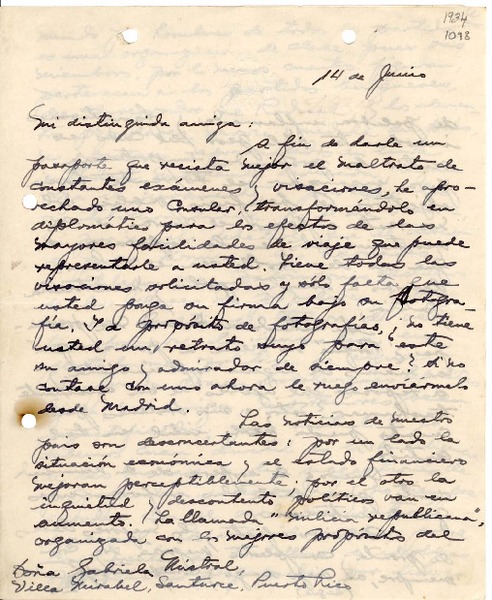 1934
1098
14 de Junio
Mi distinguida amiga:
A fin de darle un
pasaporte que resista mejor el maltrato de
constantes exámenes y visaciones, he apro-
vechado uno Consular, transformándolo en
diplomático para los efectos de las
mayores facilidades de viaje que puede
representarle a usted. Tiene todas las
visaciones solicitadas y sólo falta que
usted ponga su firma bajo su fotogra-
fía. Y a propósito de fotografías, ¿no tiene
usted un retrato suyo para este
su amigo y admirador de siempre? Si no
contase con uno ahora le ruego enviármelo
desde Madrid.
Las noticias de nuestro
país son desconcertantes: por un lado la
situación económica y el estado financiero
mejoran perceptiblemente; por el otro la
inquietud y descontento políticos van en
aumento. La llamada "milicia republicana",
organizada con los mejores propósitos del
Doña Gabriela Mistral,
Villa Mirabel, Santurce, Puerto Rico